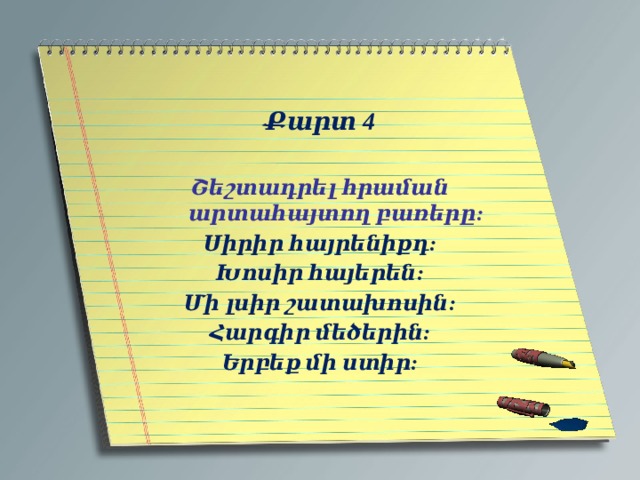 Քարտ 4
Շեշտադրել հրաման
արտահայտող բառերը:
Սիրիր հայրենիքդ:
Խոսիր հայերեն:
Մի լսիր շատախոսին:
Հարգիր մեծերին:
Երբեք մի ստիր: